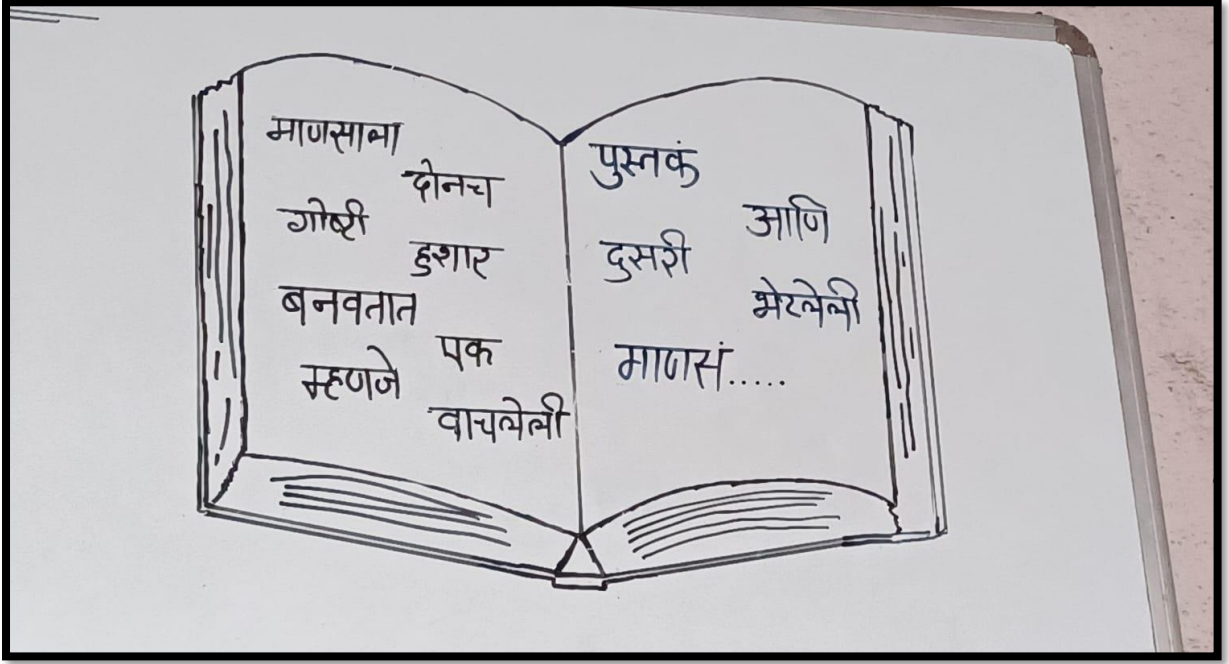 माणसाला
दोनच
गोष्टी
हुशार
बनवतात
एक
म्हणजे
वाचलेली
पुस्तकं
आणि
दुसरी
भेटलेली
माणसं.....